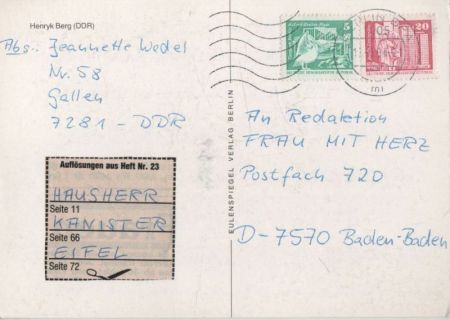 Henryk Berg (DDR)
Abs.: Jeannette Wedel
Nr. 58
Gallen
7281 - DDR
Auflösungen aus Heft Nr. 23
HAUSHERR
Seite 11
KANISTER
Seite 66
EIFEL
Seite 72
EULENSPIEGEL VERLAG BERLIN
5
20
An Redaktion
FRAU MIT HERZ
Postfach 720
D-7570 Baden-Baden